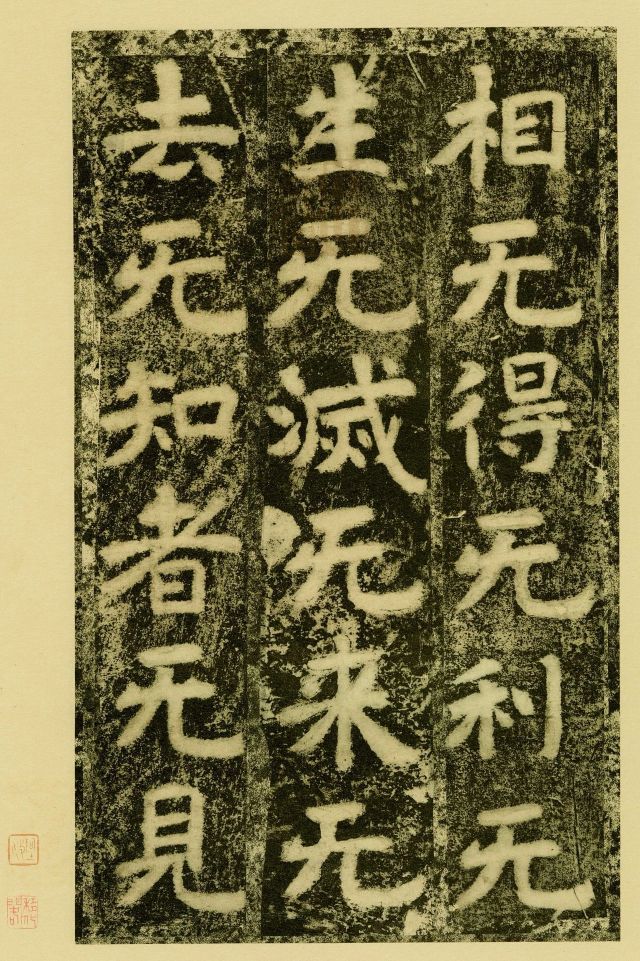 相无得无利无
生无滅无来无
去无知者无見